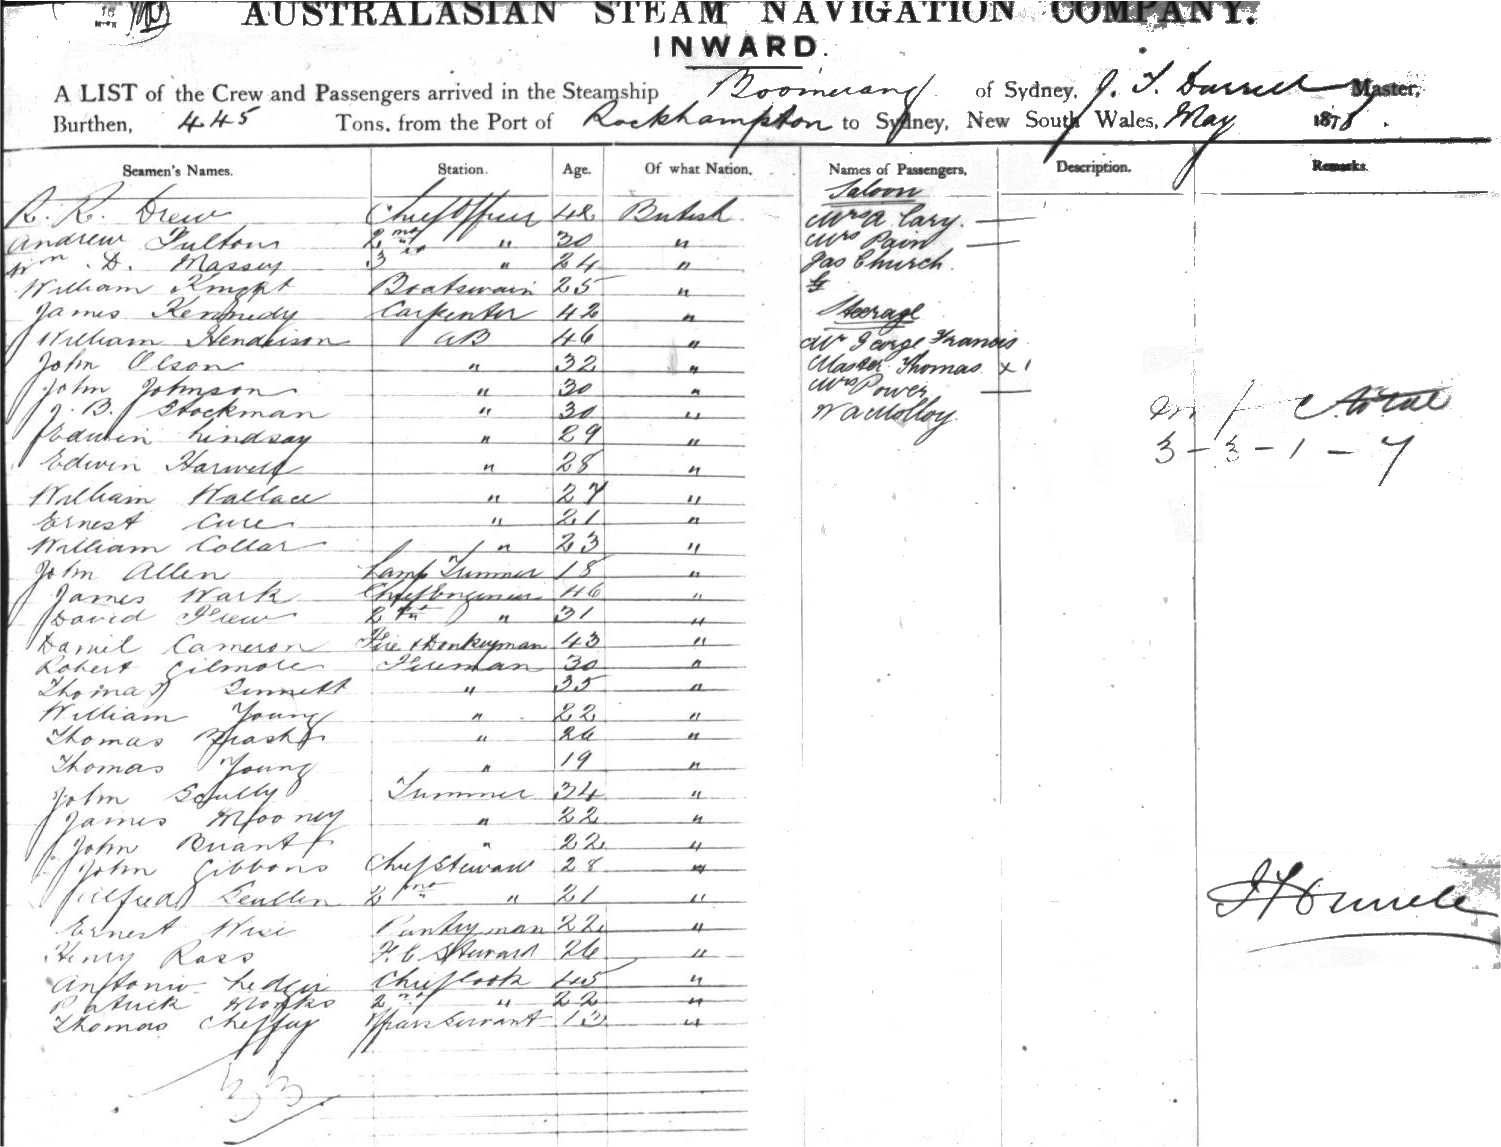 AUSTRALASIAN STEAM NAVIGATION COMPANY.
INWARD.
A LIST of the Crew and Passengers arrived in the Steamship Boomerang of Sydney, J. T. Darrell Master,
Burthen, 445 Tons, from the Port of Rockhampton to Sydney, New South Wales, May 1878.
Seamen's Names. Station. Age. Of what Nation. Names of Passengers, Description. Remarks.
Saloon
R. R. Drew Chief Officer 42 British Mrs A Cary.
Andrew Fulton 2nd " 30 " Mrs Pain
Wm. D. Massey 3rd " 24 " Jas Church.
William Knight Boatswain 25 "
James Kennedy Carpenter 42 " Steerage
William Henderson AB 46 " Mr George Francis
John Olson " 32 " Master Thomas x 1
John Johnson " 30 " Mrs Power
J. B. Stockman " 30 " W A Molloy.
Edwin Lindsay " 29 "
Edwin Harwell " 28 "
William Wallace " 27 "
Ernest Cure " 21 "
William Collar " 23 "
John Allen Lamp Trimmer 18 "
James Wark Chief Engineer 46 "
David Frew 2nd " 31 "
Daniel Cameron Fire & Donkeyman 43 "
Robert Gilmore Fireman 30 "
Thomas Sinnett " 35 "
William Young " 22 "
Thomas " 26 "
Thomas Young " 19 "
John Scully Trimmer 34 "
James Mooney " 22 "
John Briant " 22 "
John Gibbons Chief Steward 28 "
Alfred 2nd " 21 "
Ernest Wise Pantryman 22 "
Henry Ross F. C. Steward 26 "
Antonio Chief Cook 45 "
Patrick Monks 2nd " 22 "
Thomas Cheffey Servant 13 "
33
m f c Total
3 - 3 - 1 - 7
J T Darrell